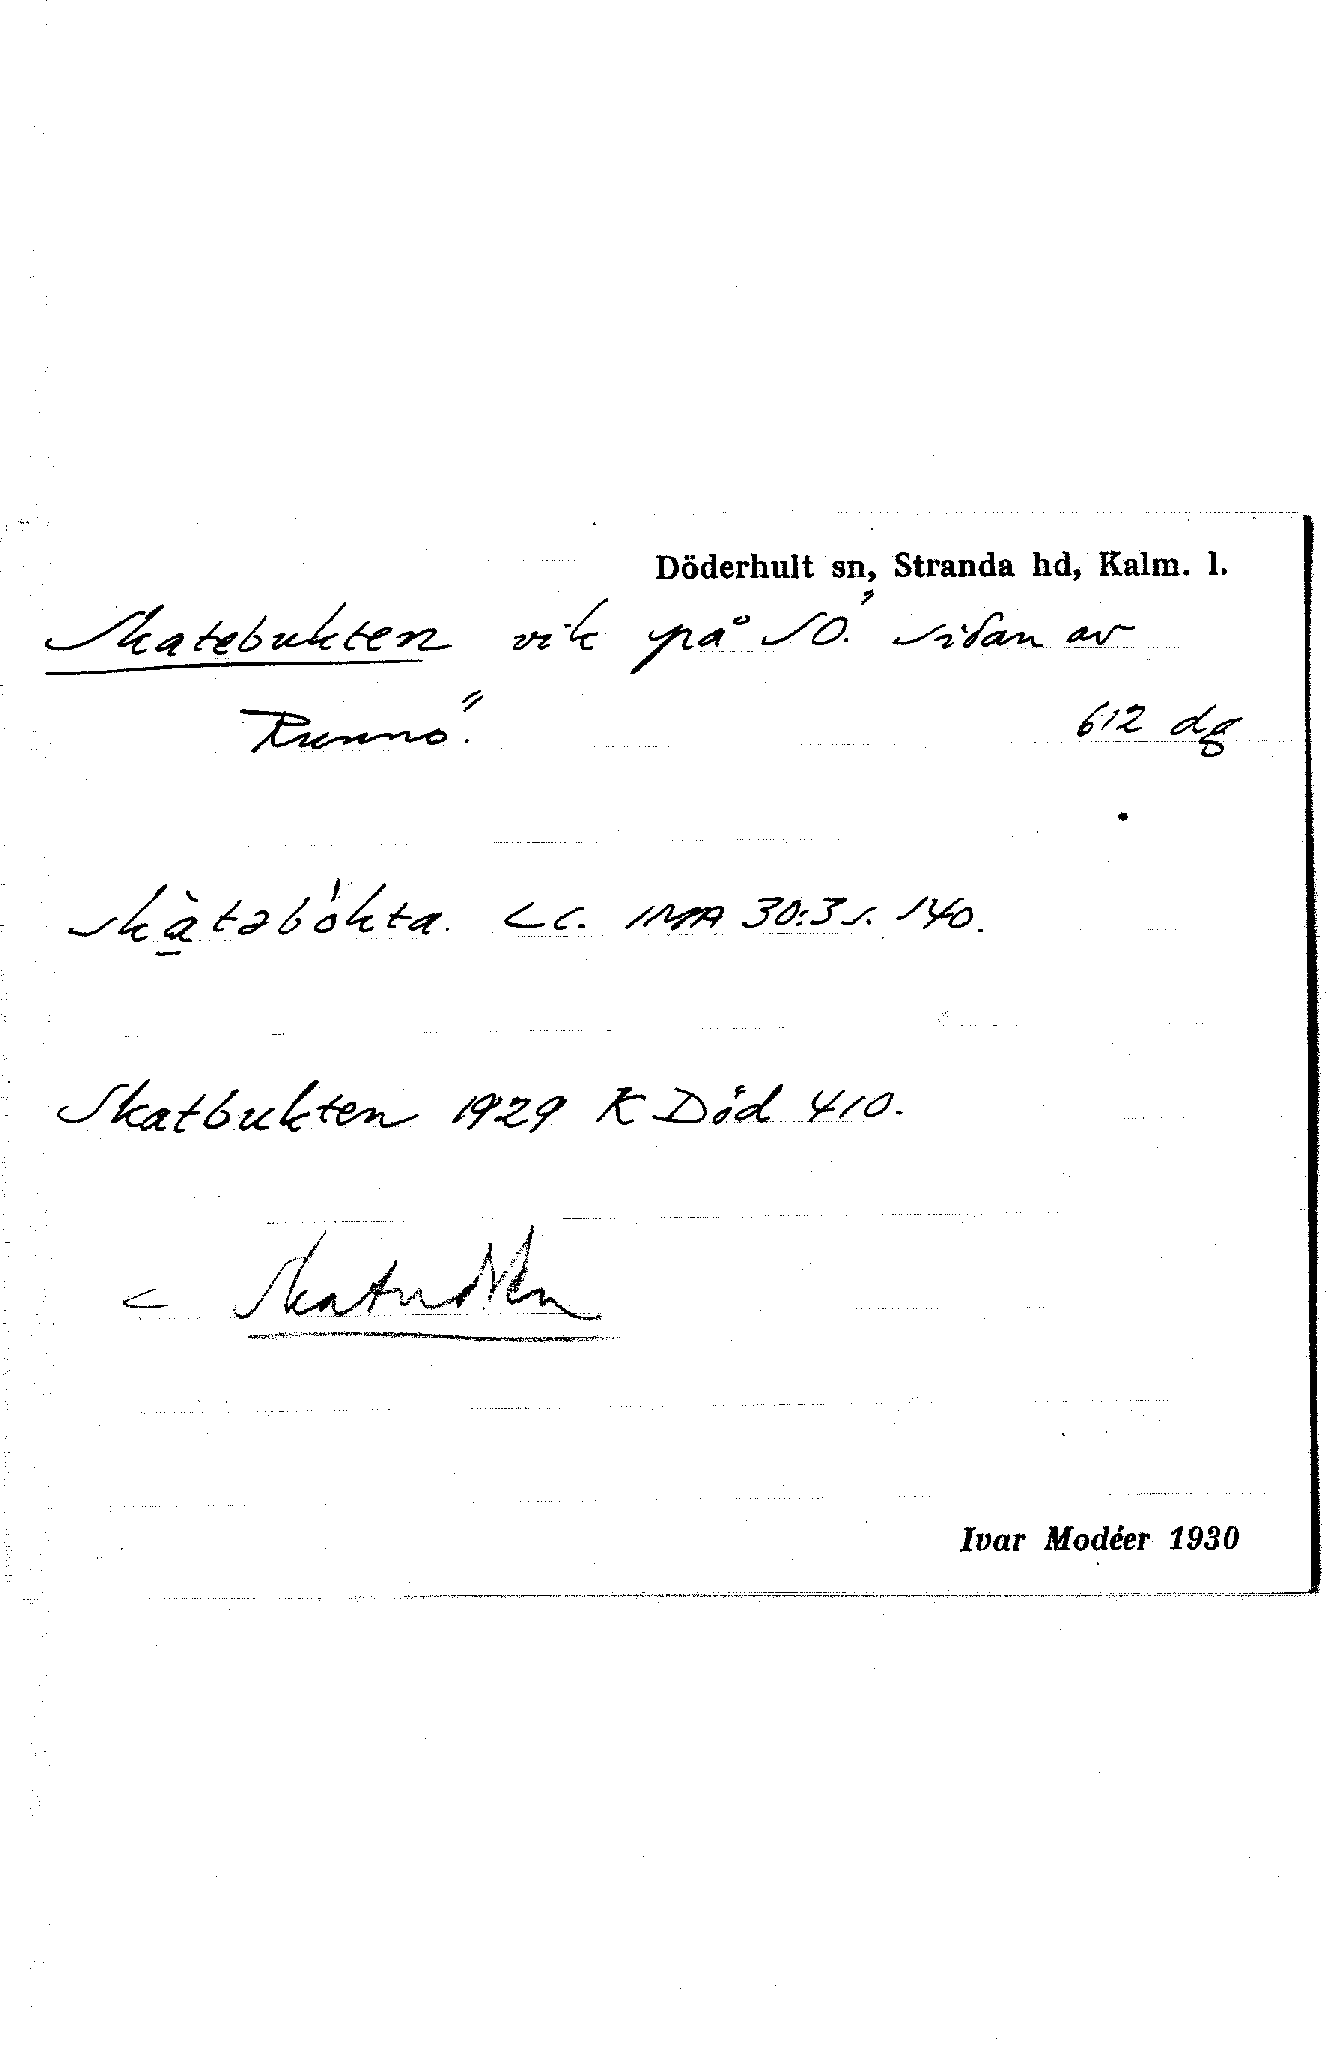 Döderhult sn, Stranda hd, Kalm. l.
Skatebukten vik på SÖ. sidan av
Runnö. 612 dg
skàtəbókta. Lc. IMA 30:3 s. 140.
Skatbukten 1929 K Död 410.
< Skatudden
Ivar Modéer 1930